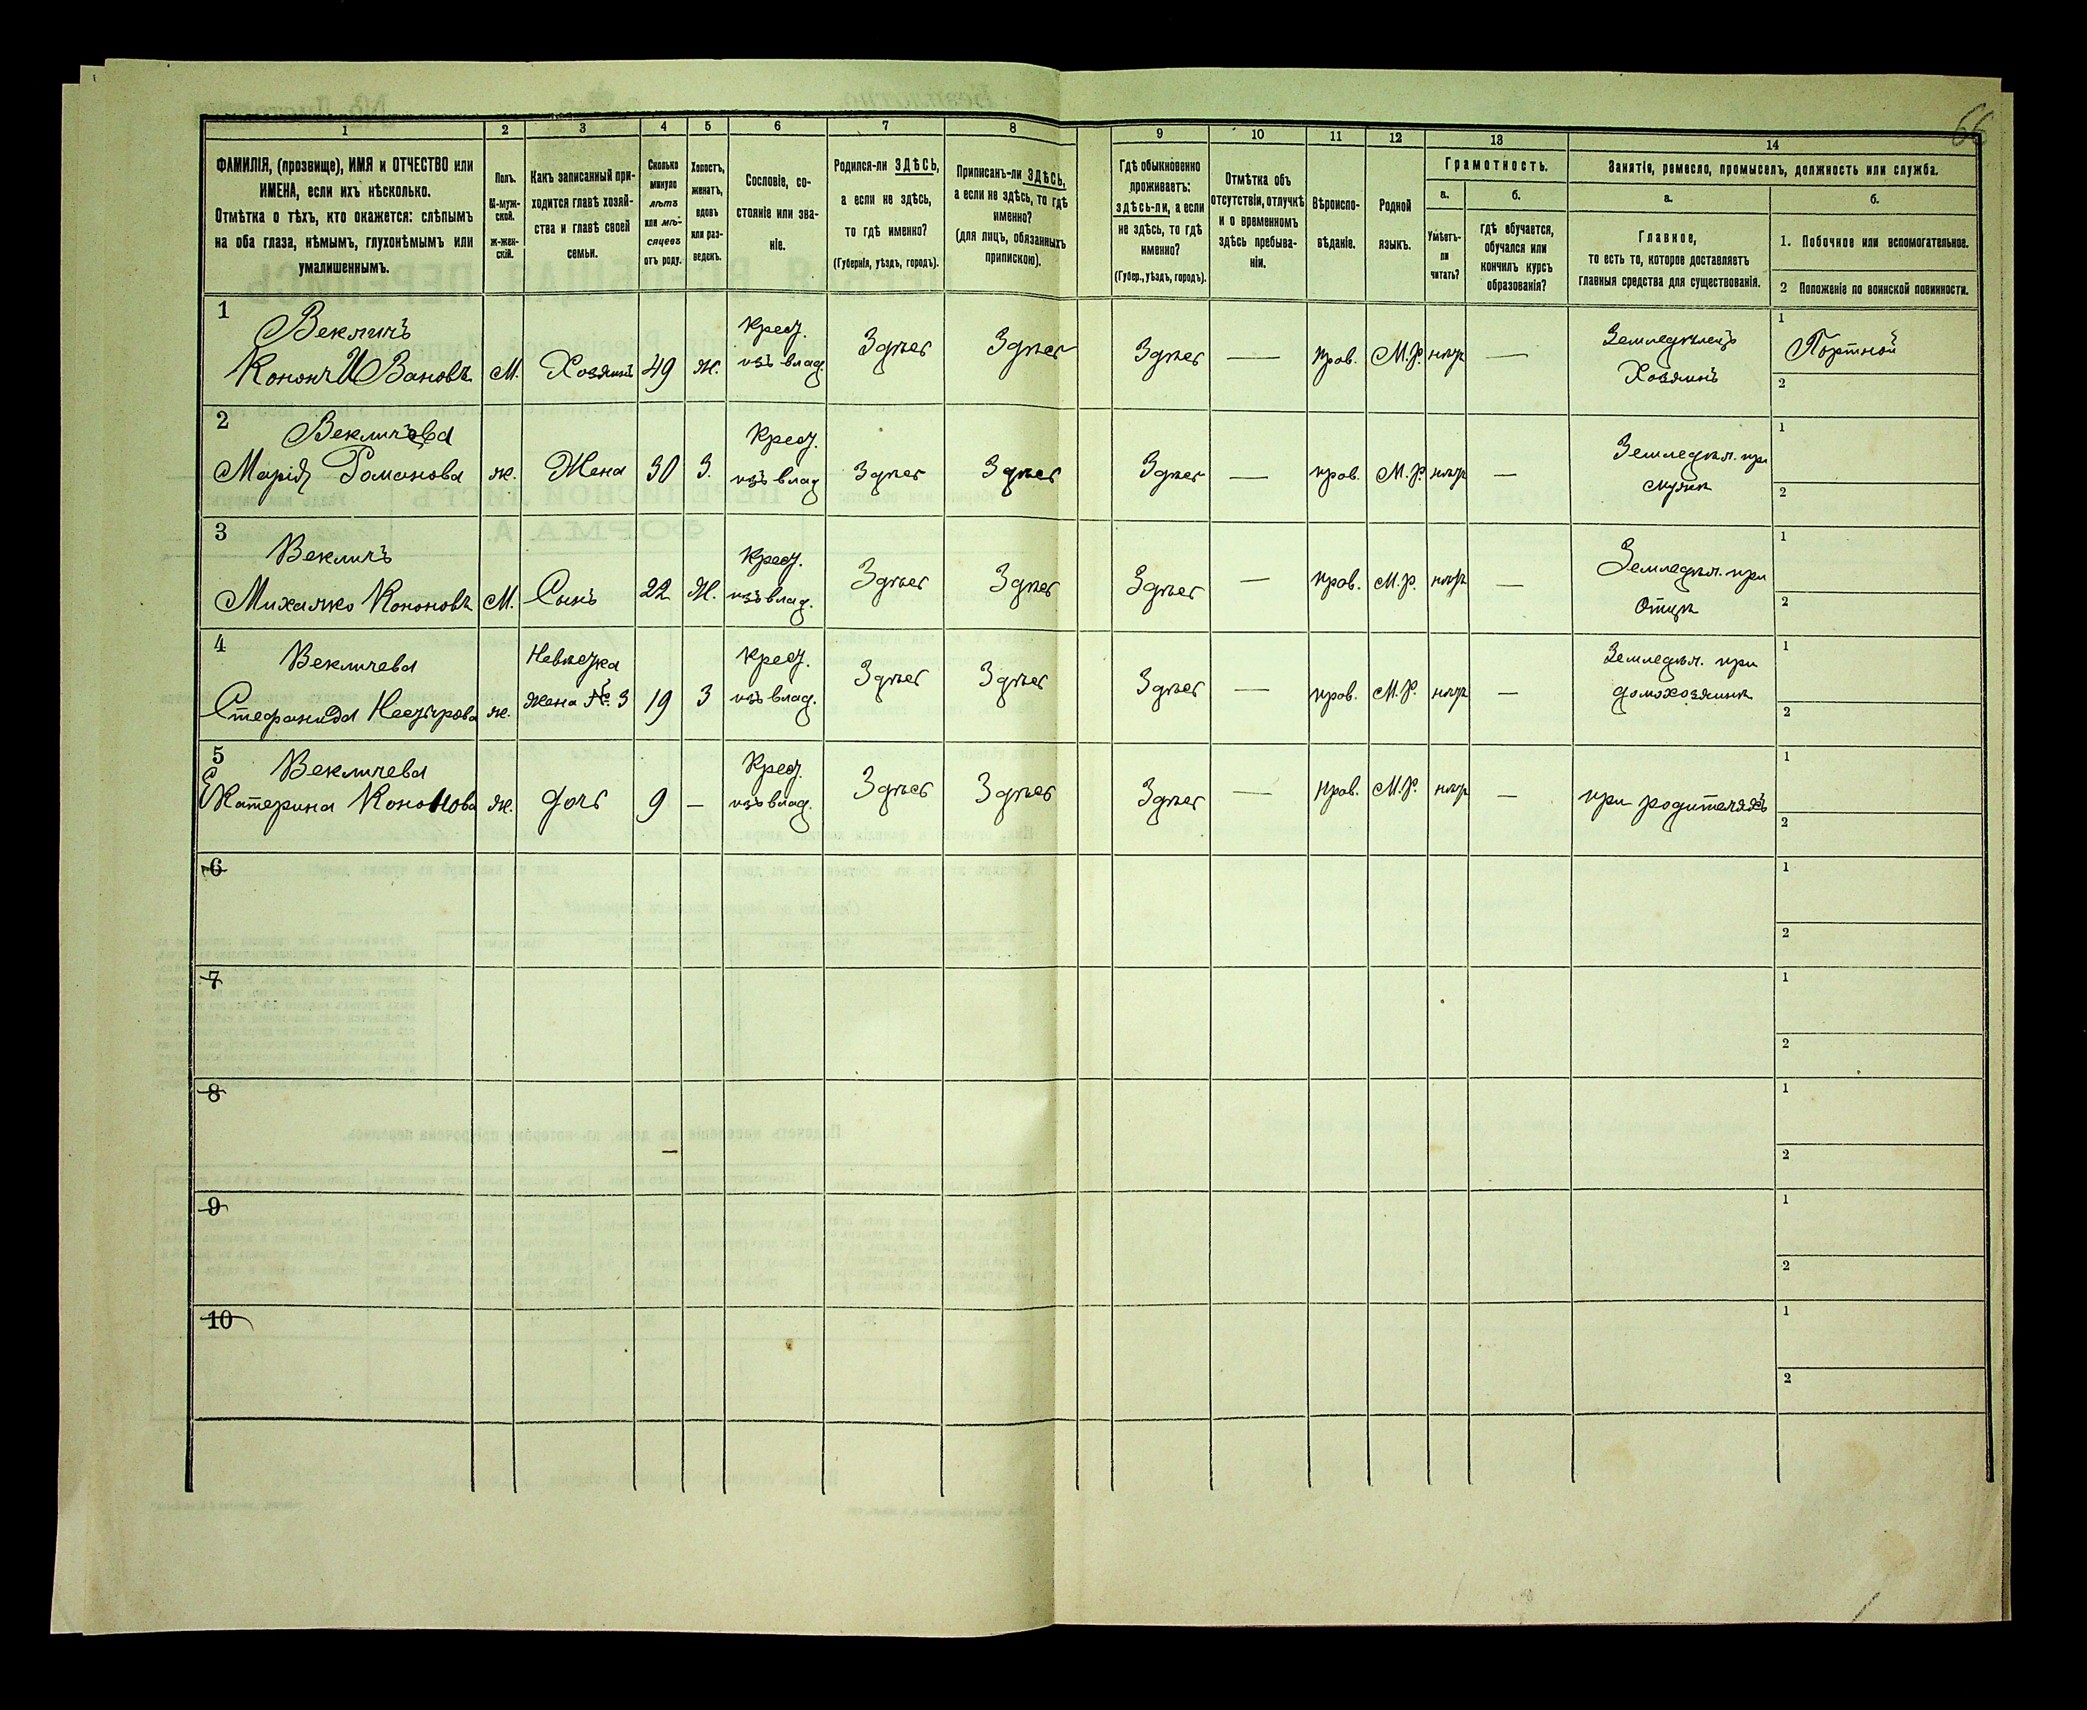 66
1 2 3 4 5 6 7 8 9 10 11 12 13 14
ФАМИЛІЯ, (прозвище), ИМЯ и ОТЧЕСТВО или
ИМЕНА, если ихъ нѣсколько.
Отмѣтка о тѣхъ, кто окажется: слѣпымъ
на оба глаза, нѣмымъ, глухонѣмымъ или
умалишеннымъ.
Полъ.
М-муж-
ской.
ж-жен-
скій.
Какъ записанный при-
ходится главѣ хозяй-
ства и главѣ своей
семьи.
Сколько
минуло
лѣтъ
или мѣ-
сяцевъ
отъ роду.
Холостъ,
женатъ,
вдовъ
или раз-
веденъ.
Сословіе, со-
стояніе или зва-
ніе.
Родился-ли ЗДѢСЬ,
а если не здѣсь,
то гдѣ именно?
(Губернія, уѣздъ, городъ).
Приписанъ-ли ЗДѢСЬ,
а если не здѣсь, то гдѣ
именно?
(для лицъ, обязанныхъ
припискою).
Гдѣ обыкновенно
проживаетъ:
здѣсь-ли, а если
не здѣсь, то гдѣ
именно?
(Губер., уѣздъ, городъ).
Отмѣтка объ
отсутствіи, отлучкѣ
и о временномъ
здѣсь пребыва-
ніи.
Вѣроиспо-
вѣданіе.
Родной
языкъ.
Грамотность.
а.
Умѣетъ-
ли
читать?
б.
гдѣ обучается,
обучался или
кончилъ курсъ
образованія?
Занятіе, ремесло, промыселъ, должность или служба.
а.
Главное,
то есть то, которое доставляетъ
главныя средства для существованія.
б.
1. Побочное или вспомогательное.
2 Положеніе по воинской повинности.
1
Векличъ
Кононъ ИВановъ
М.
Хозяинъ
49
ж.
Крест.
изъ влад.
Здѣсь
Здѣсь
Здѣсь
—
прав.
М.Р.
нѣтъ
—
Земледѣлецъ
Хозяинъ
1
Портной
2
2
Векличева
Марія Романова
ж.
Жена
30
З.
Крест.
изъ влад
Здѣсь
Здѣсь
Здѣсь
—
прав.
М.Р.
нѣтъ
—
Земледѣл. при
мужѣ
1
2
3
Векличъ
Михалко Кононовъ
М.
Сынъ
22
Ж.
Крест.
изъ влад.
Здѣсь
Здѣсь
Здѣсь
—
прав.
М.Р.
нѣтъ
—
Земледѣл. при
Отцѣ
1
2
4
Векличева
Стефанида Нестѣрова
ж.
Невѣстка
Жена №. 3
19
З
Крест.
изъ влад.
Здѣсь
Здѣсь
Здѣсь
—
прав.
М.Р.
нѣтъ
—
Земледѣл. при
домохозяинѣ
1
2
5
Векличева
Екатерина Кононова
ж.
дочь
9
—
Крест.
изъ влад.
Здѣсь
Здѣсь
Здѣсь
—
прав.
М.Р.
нѣтъ
—
при родителяхъ
1
2
6
1
2
7
1
2
8
1
2
9
1
2
10
1
2